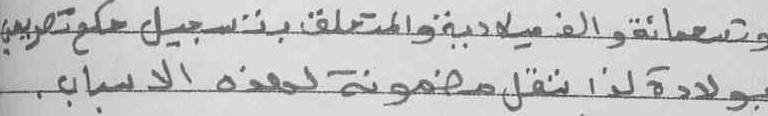 وتسعمائة والف ميلادية والمتعلق بتسجيل حكم تصريحي
بولادة لذا ننقل مضمونة لهذه الاسباب.